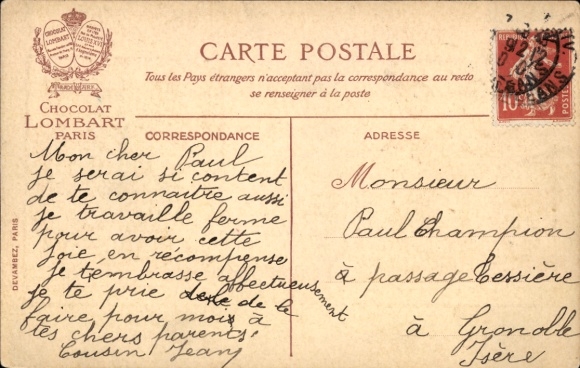 CHOCOLAT
LOMBART
CARTE POSTALE
Tous les Pays étrangers n'acceptant pas la correspondance au recto
se renseigner à la poste
CHOCOLAT
LOMBART
PARIS
CORRESPONDANCE
ADRESSE
REPUBLIQUE
10
POSTES
Mon cher Paul
je serai si content
de te connaitre aussi
je travaille ferme
pour avoir cette
joie en recompense
je t'embrasse affectueusement
je te prie de le
faire pour mois à
tes chers parents
Cousin Jean
Monsieur
Paul Champion
à passage Tessière
à Grenoble
Isère
DEVAMBEZ, PARIS